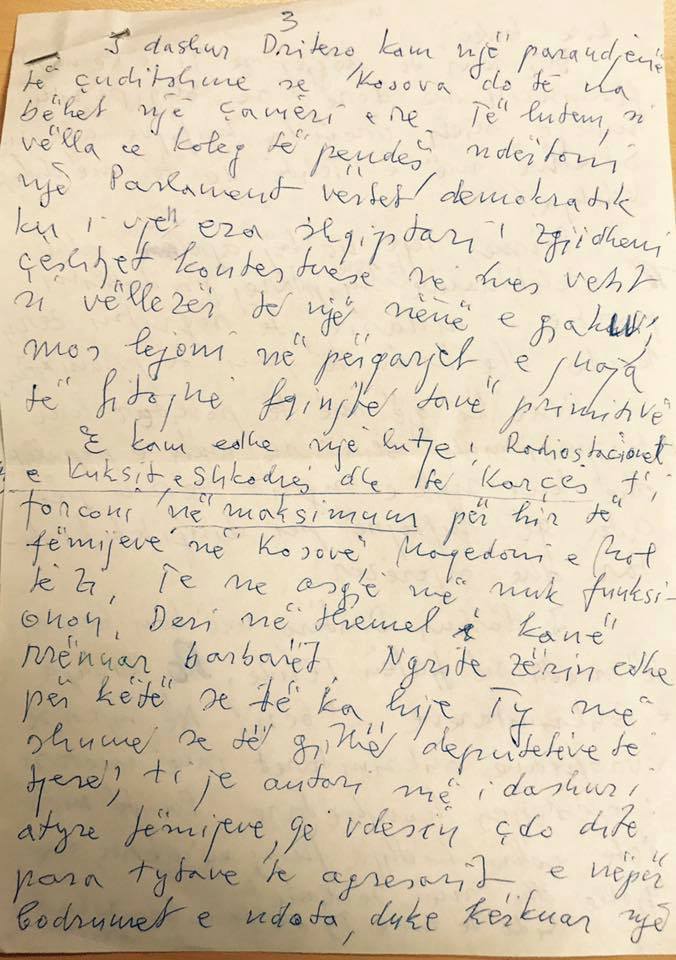 3
I dashur Dritero kam një parandjenë
të çuditshme se Kosova do të na
bëhet një çamëri e re. Të lutem, si
vëlla e koleg të pendës, ndërtoni
një Parlament vërtet demokratik
ku i vjen era shqiptari! Zgjidheni
çështjet kontestuese në mes vetit
si vëllezër të një nënë e gjaku,
mos lejoni në përqarjet e
të fitojnë fqinjët tanë primitivë
E kam edhe një lutje: Radiostacionet
e Kuksit, e Shkodrës dhe të Korçës t'i
forconi në maksimum për hir të
fëmijëve në Kosovë Maqedoni e Mal
të Zi, Te ne asgjë më nuk funksi-
onon. Deri në themel i kanë
rrënuar barbarët. Ngrite zërin edhe
për këtë se të ka hije Ty më
shumë se të gjithë deputetëve të
tjerë, ti je autori më i dashuri
atyre fëmijëve, që vdesin çdo ditë
para sytave të agresorit e nëpër
bodrumet e ndota, duke kërkuar një